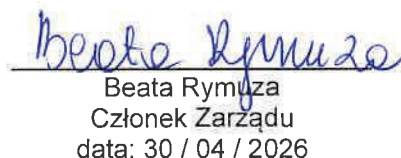 Beata Rymuza
Beata Rymuza
Członek Zarządu
data: 30 / 04 / 2026